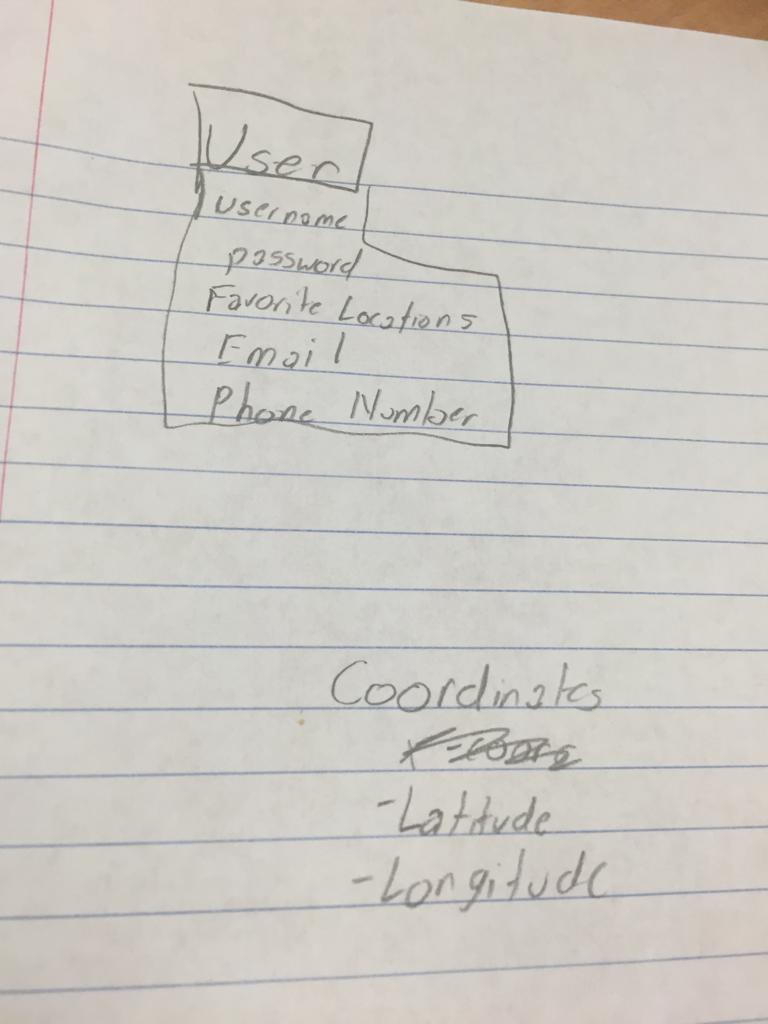 User
username
password
Favorite Locations
Email
Phone Number
Coordinates
-Latitude
-Longitude